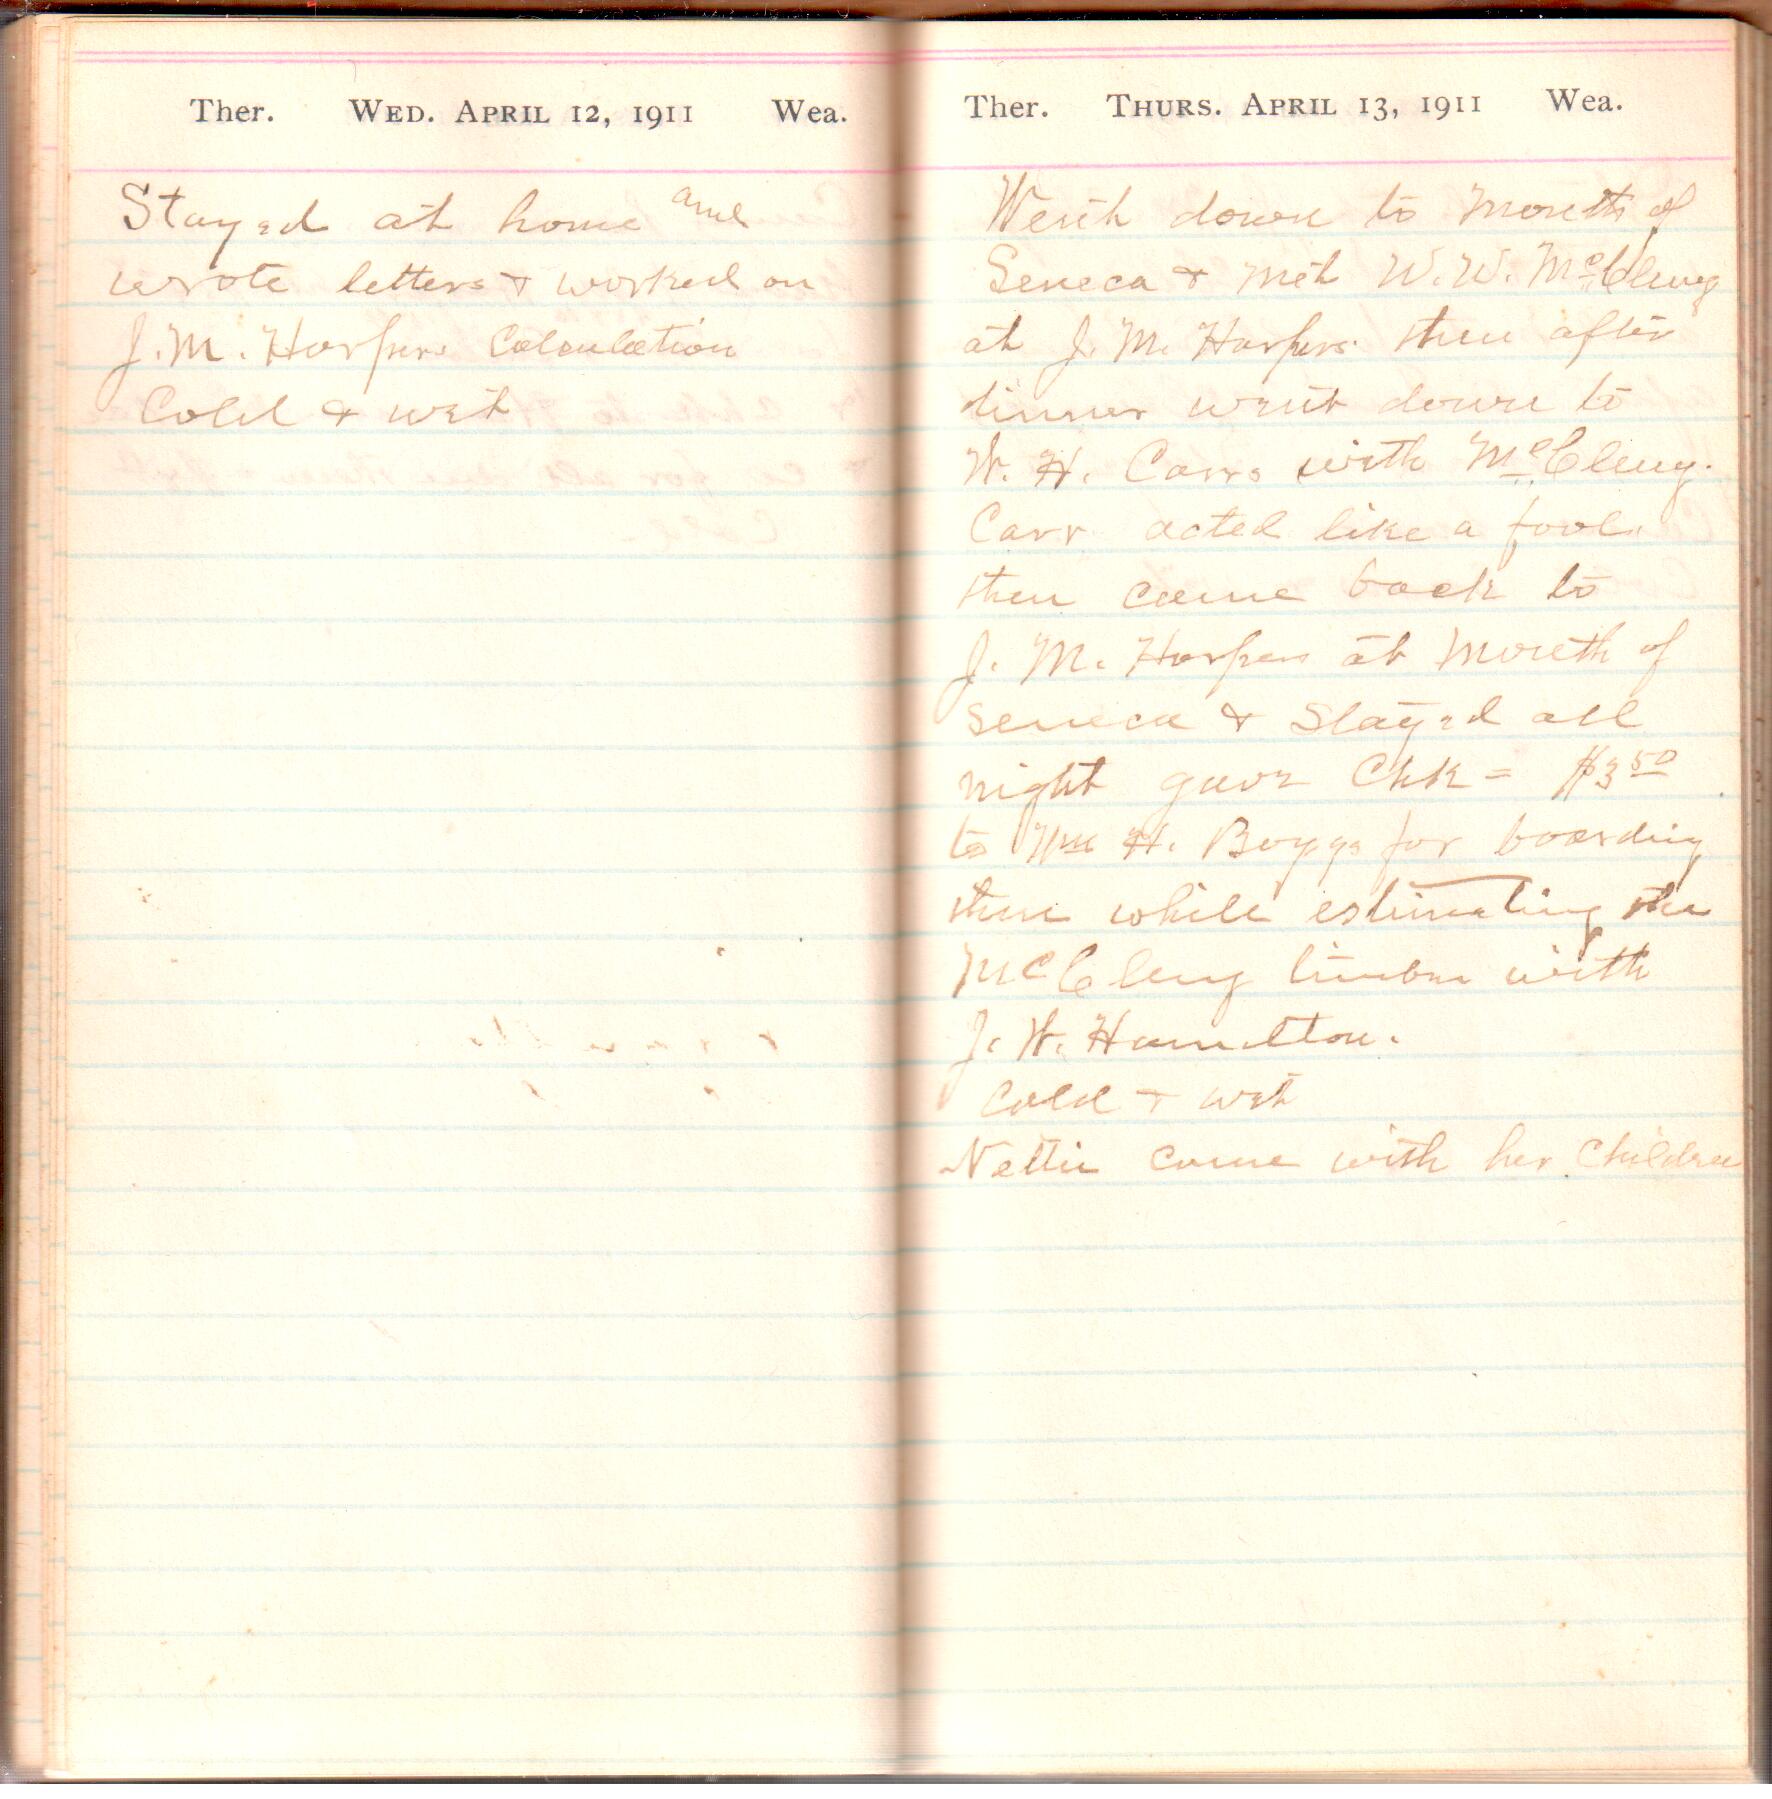 Ther. WED. APRIL 12, 1911 Wea.
Stayed at home and
wrote letters & worked on
J. M. Harpers Calculation
Cold & wet
Ther. THURS. APRIL 13, 1911 Wea.
Went down to Mouth of
Seneca & Met W. W. McClung
at J. M. Harpers. then after
dinner went down to
W. H. Carrs with McClung.
Carr acted like a fool.
then came back to
J. M. Harpers at Mouth of
Seneca & Stayed all
night gave Chk = $3.50
to Wm H. Boggs for boarding
there while estimating the
McClung timber with
J. W. Hamilton.
Cold & wet
Nettie come with her children